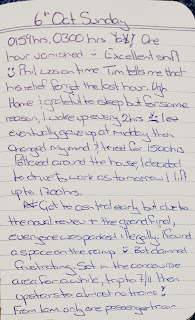 6th Oct Sunday
0159hrs, 0300 hrs Yay! One
hour vanished :) Excellent shift
:) Phil was on time. Tim tells me that
his relief forgot the last hour. Ugh
Home & grateful to sleep but for some
reason, I wake up every 2hrs I
eventually gave up at midday then
changed my mind & tried for 1500hrs
Pottered around the house, I decided
to drive to work as tomorrow I lift
up to 1700hrs.
Got to central early but due to
the naval review & the grand final,
everyone was parked illegally. I found
a space on the ramp :) But damned
frustrating. Sat in the concourse
area for a while, trip to 7/11 then
upstairs to almost no trains
From 1am only one passenger train